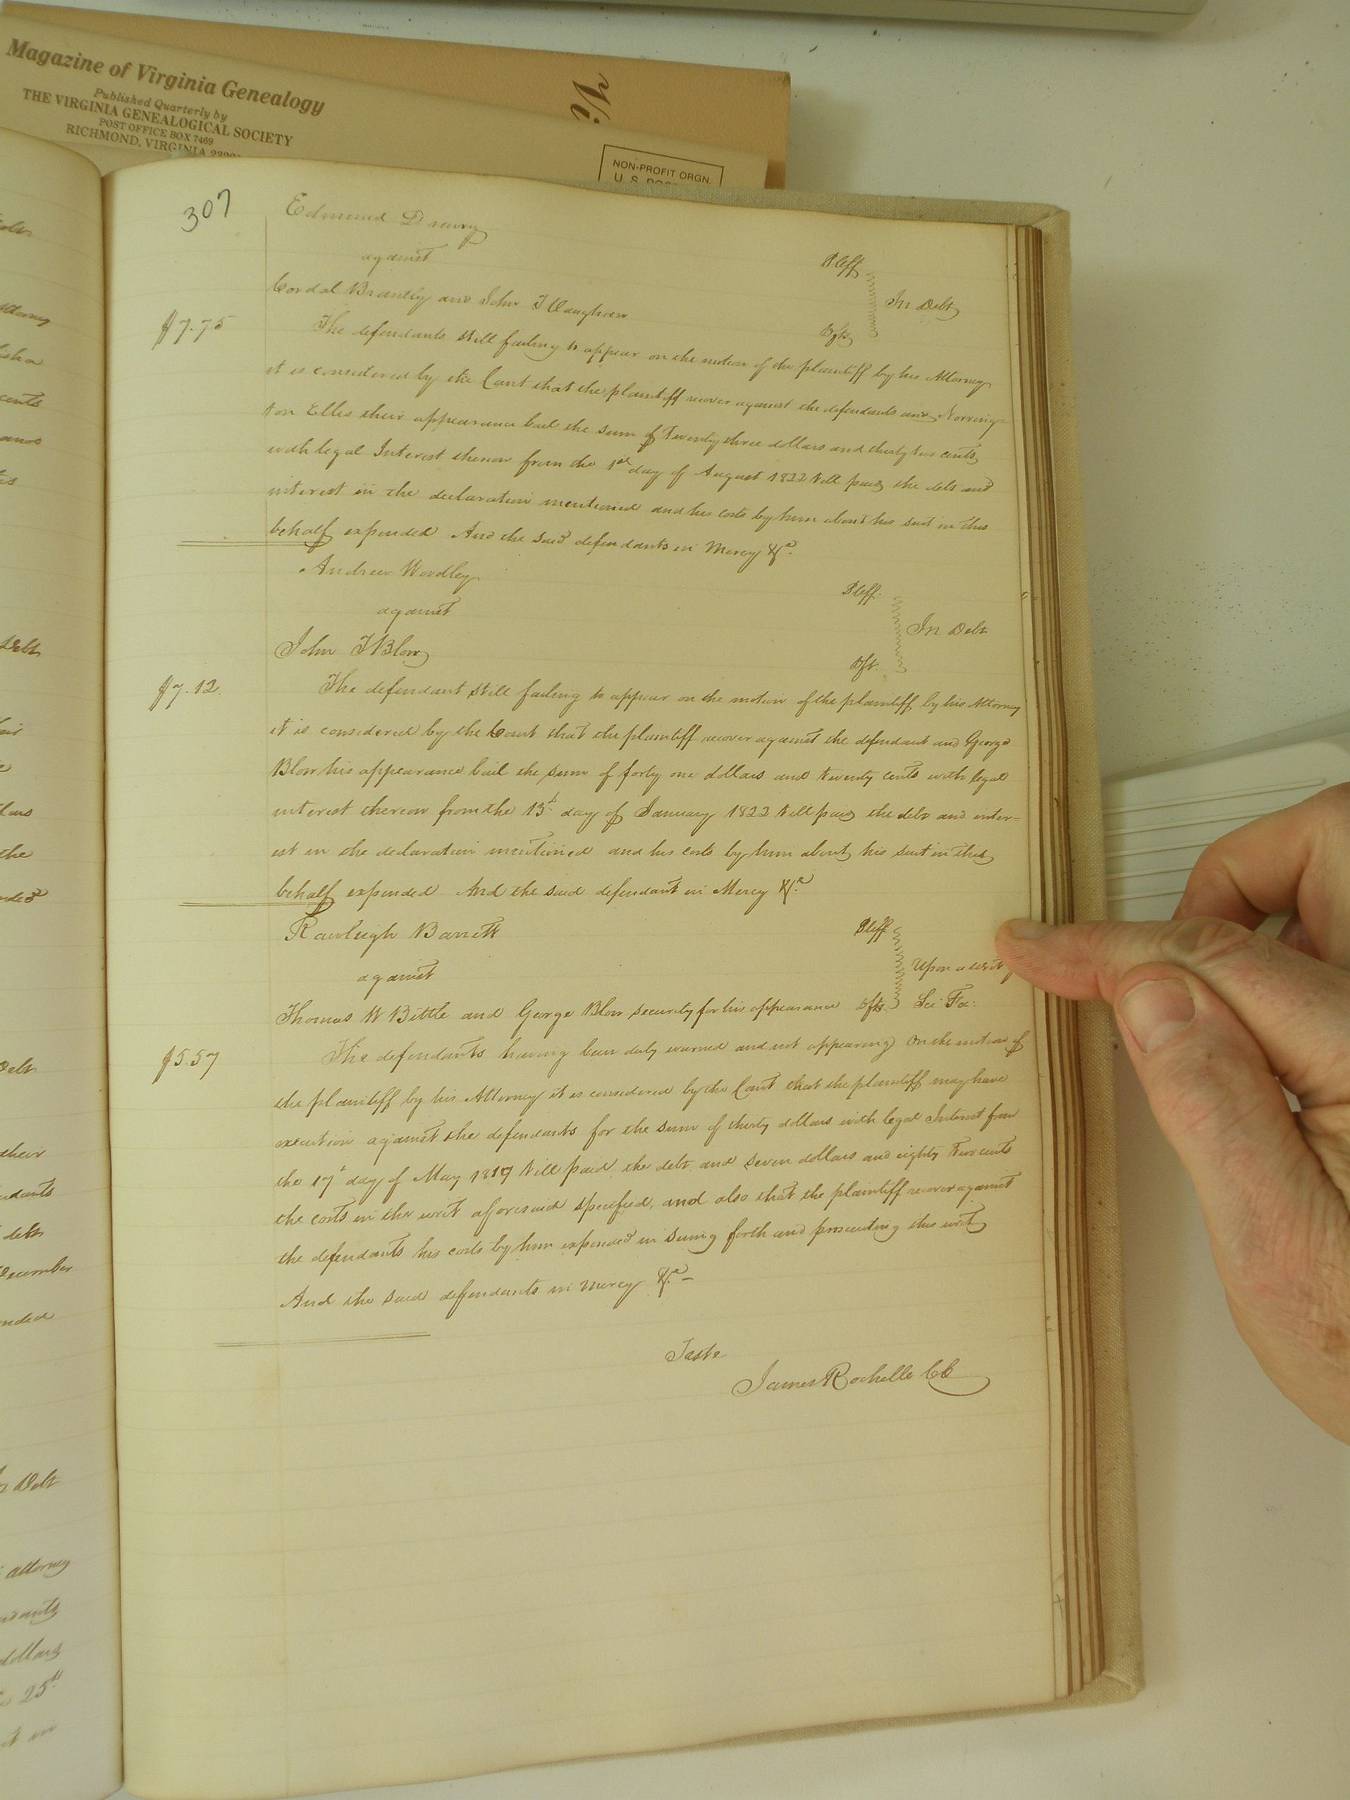 Magazine of Virginia Genealogy
Published Quarterly by
THE VIRGINIA GENEALOGICAL SOCIETY
POST OFFICE BOX 7469
RICHMOND, VIRGINIA
NON-PROFIT ORGN.
307
Edmund Drewry
against
Plff
In Debt
Cordal Brantly and John T Vaughan
Dfts
$7.75
The defendants still failing to appear on the motion of the plaintiff by his Attorney
it is considered by the Court that the plaintiff recover against the defendants and Norring-
ton Ellis their appearance bail the sum of Twenty three dollars and thirty two cents
with legal Interest thereon from the 1st day of August 1822 till paid the debt and
interest in the declaration mentioned and his costs by him about his suit in this
behalf expended And the said defendants in Mercy &c.
Andrew Woodley
against
Plff.
In Debt
John T Blow
Dft.
$7.12
The defendant still failing to appear on the motion of the plaintiff by his Attorney
it is considered by the Court that the plaintiff recover against the defendant and George
Blow his appearance bail the sum of forty one dollars and twenty cents with legal
interest thereon from the 15t. day of January 1822 till paid the debt and inter-
est in the declaration mentioned and his costs by him about his suit in this
behalf expended And the said defendant in Mercy &a.
Rawleigh Barrett
against
Plff
Upon a writ
Thomas W Bittle and George Blow security for his appearance Dfts.
Sci Fa.
$5.57
The defendants having been duly warned and not appearing on the motion of
the plaintiff by his Attorney it is considered by the Court that the plaintiff may have
execution against the defendants for the sum of thirty dollars with legal Interest from
the 17t day of May 1819 till paid the debt and seven dollars and eighty two cents
the costs in the writ aforesaid specified, and also that the plaintiff recover against
the defendants his costs by him expended in suing forth and prosecuting this writ
And the said defendants in Mercy &a.
Teste
James Rochelle CC